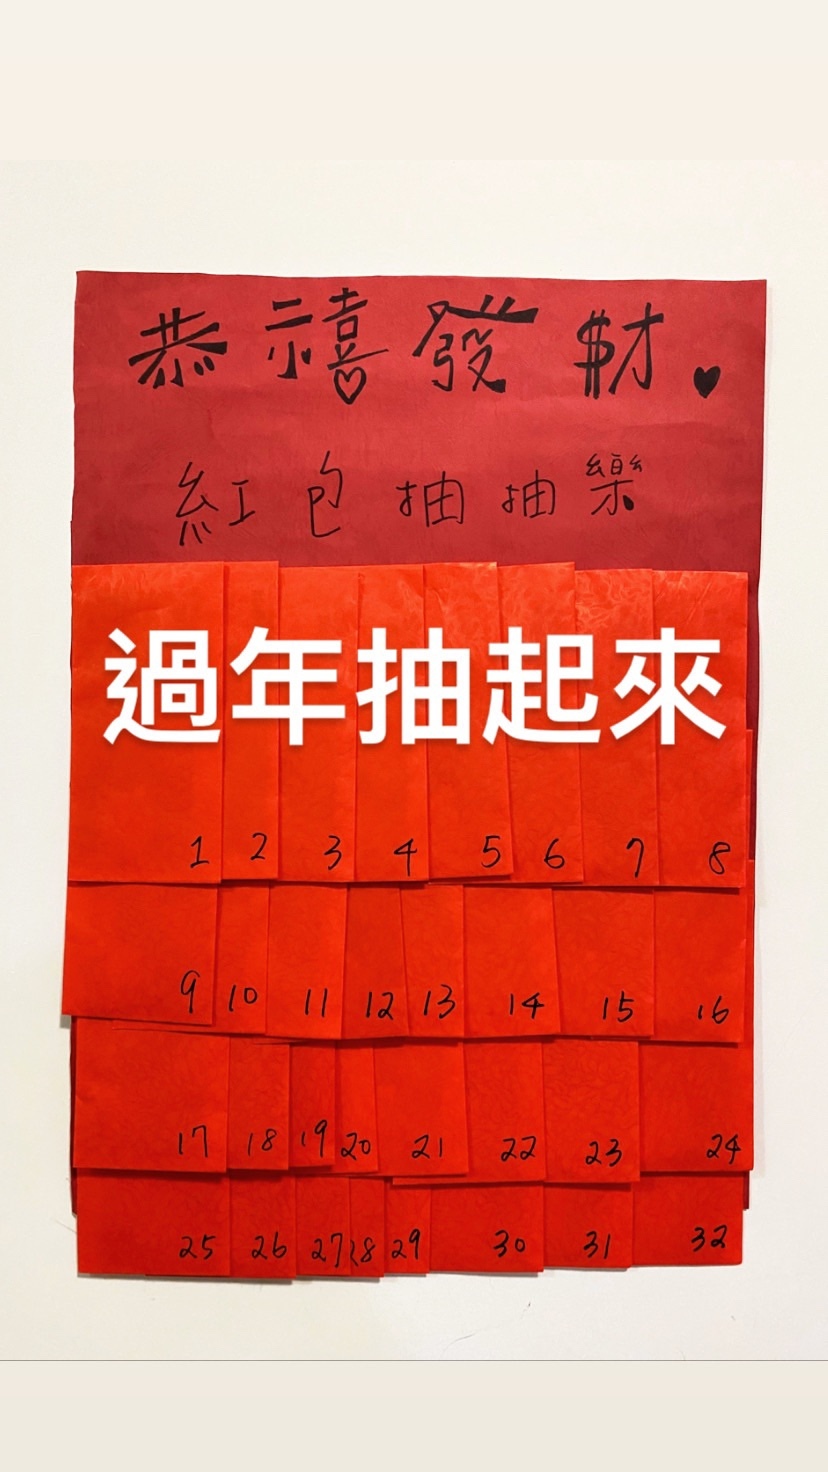 恭禧發$才♥
紅包抽抽樂
過年抽起來
1 2 3 4 5 6 7 8
9 10 11 12 13 14 15 16
17 18 19 20 21 22 23 24
25 26 27 28 29 30 31 32